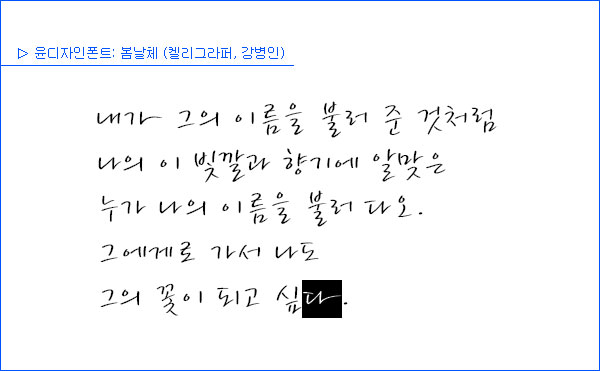 ▷ 윤디자인폰트: 봄날체 (켈리그라퍼, 강병인)
내가 그의 이름을 불러 준 것처럼
나의 이 빛깔과 향기에 알맞은
누가 나의 이름을 불러 다오.
그에게로 가서 나도
그의 꽃이 되고 싶다.